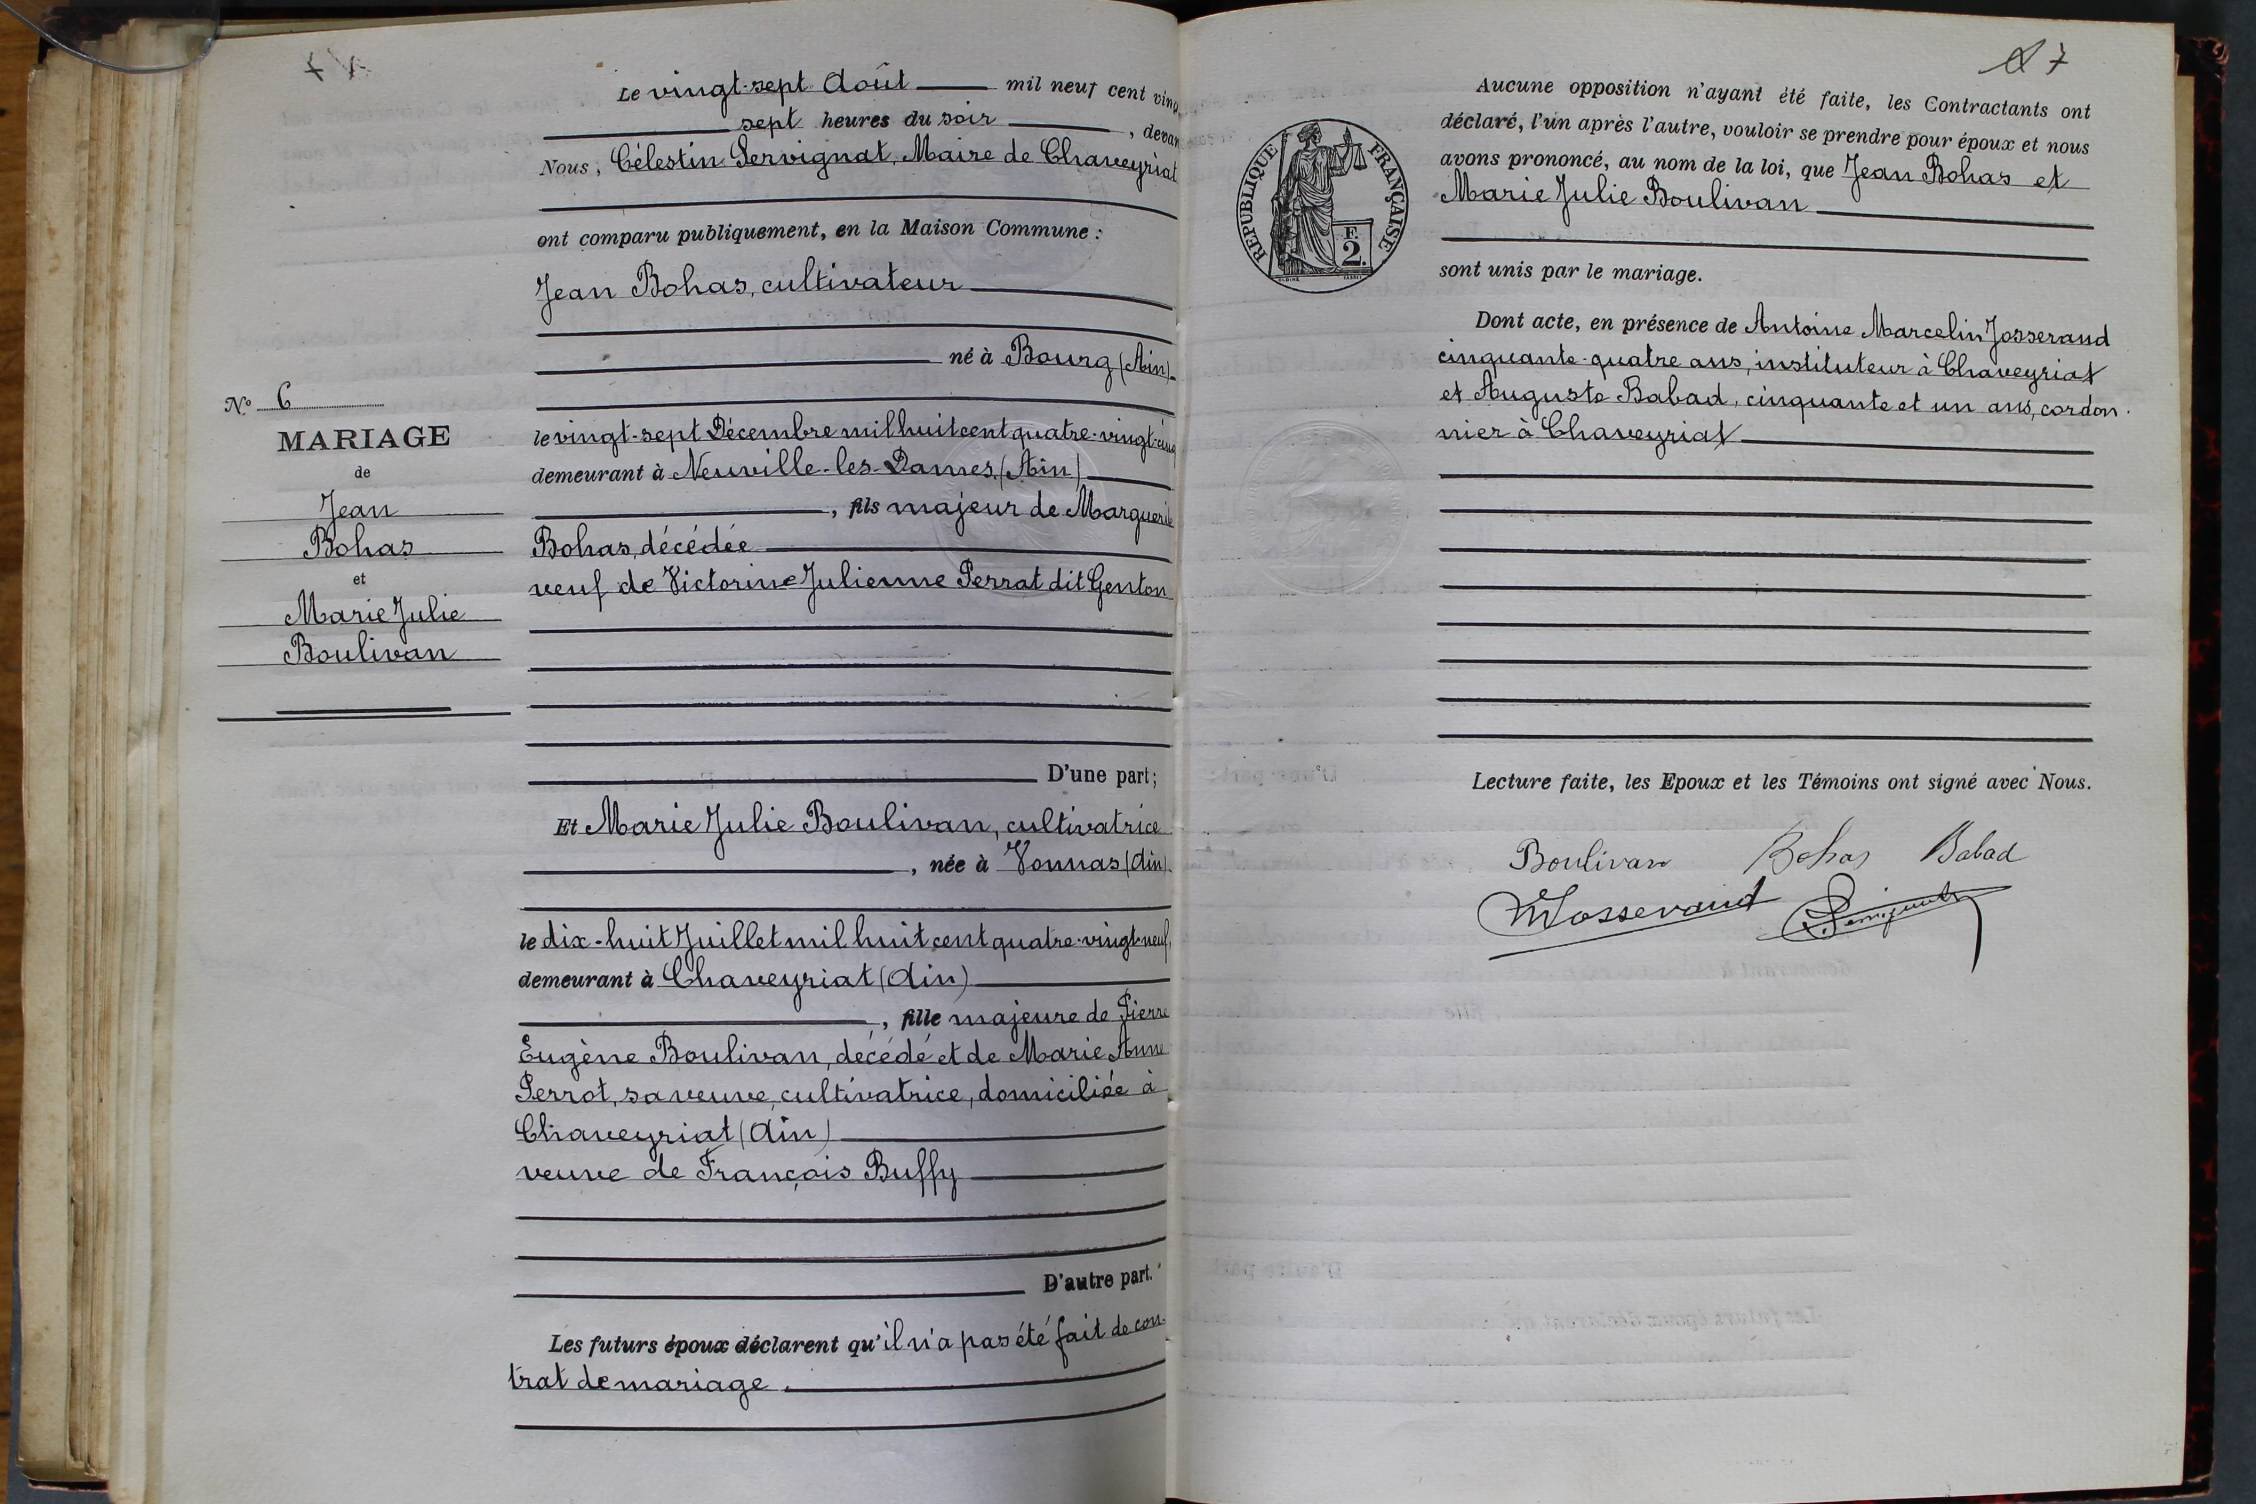 Le vingt-sept Août mil neuf cent ving
sept heures du soir , devan
Nous, Célestin Servignat, Maire de Chaveyriat
ont comparu publiquement, en la Maison Commune :
Jean Bohas, cultivateur
né à Bourg (Ain)
le vingt-sept Décembre mil huit cent quatre-vingt-cinq
demeurant à Neuville-les-Dames (Ain)
, fils majeur de Marguerite
Bohas, décédée
veuf de Victorine Julienne Perrat dit Genton
D'une part;
N.º 6
MARIAGE
de
Jean
Bohas
et
Marie Julie
Boulivan
Et Marie Julie Boulivan, cultivatrice
, née à Vonnas (Ain)
le dix-huit Juillet mil huit cent quatre-vingt-neuf,
demeurant à Chaveyriat (Ain)
, fille majeure de Pierre
Eugène Boulivan, décédé et de Marie Anne
Perrot, sa veuve, cultivatrice, domiciliée à
Chaveyriat (Ain)
veuve de François Buffy
D'autre part.
Les futurs époux déclarent qu'il n'a pas été fait de con-
trat de mariage.
7
Aucune opposition n'ayant été faite, les Contractants ont
déclaré, l'un après l'autre, vouloir se prendre pour époux et nous
avons prononcé, au nom de la loi, que Jean Bohas et
Marie Julie Boulivan
sont unis par le mariage.
REPUBLIQUE FRANÇAISE
F.
2.
Dont acte, en présence de Antoine Marcelin Josserand
cinquante-quatre ans, instituteur à Chaveyriat
et Auguste Babad, cinquante et un ans, cordon-
nier à Chaveyriat
Lecture faite, les Epoux et les Témoins ont signé avec Nous.
Boulivan Bohas Babad
MJosserand Servignat